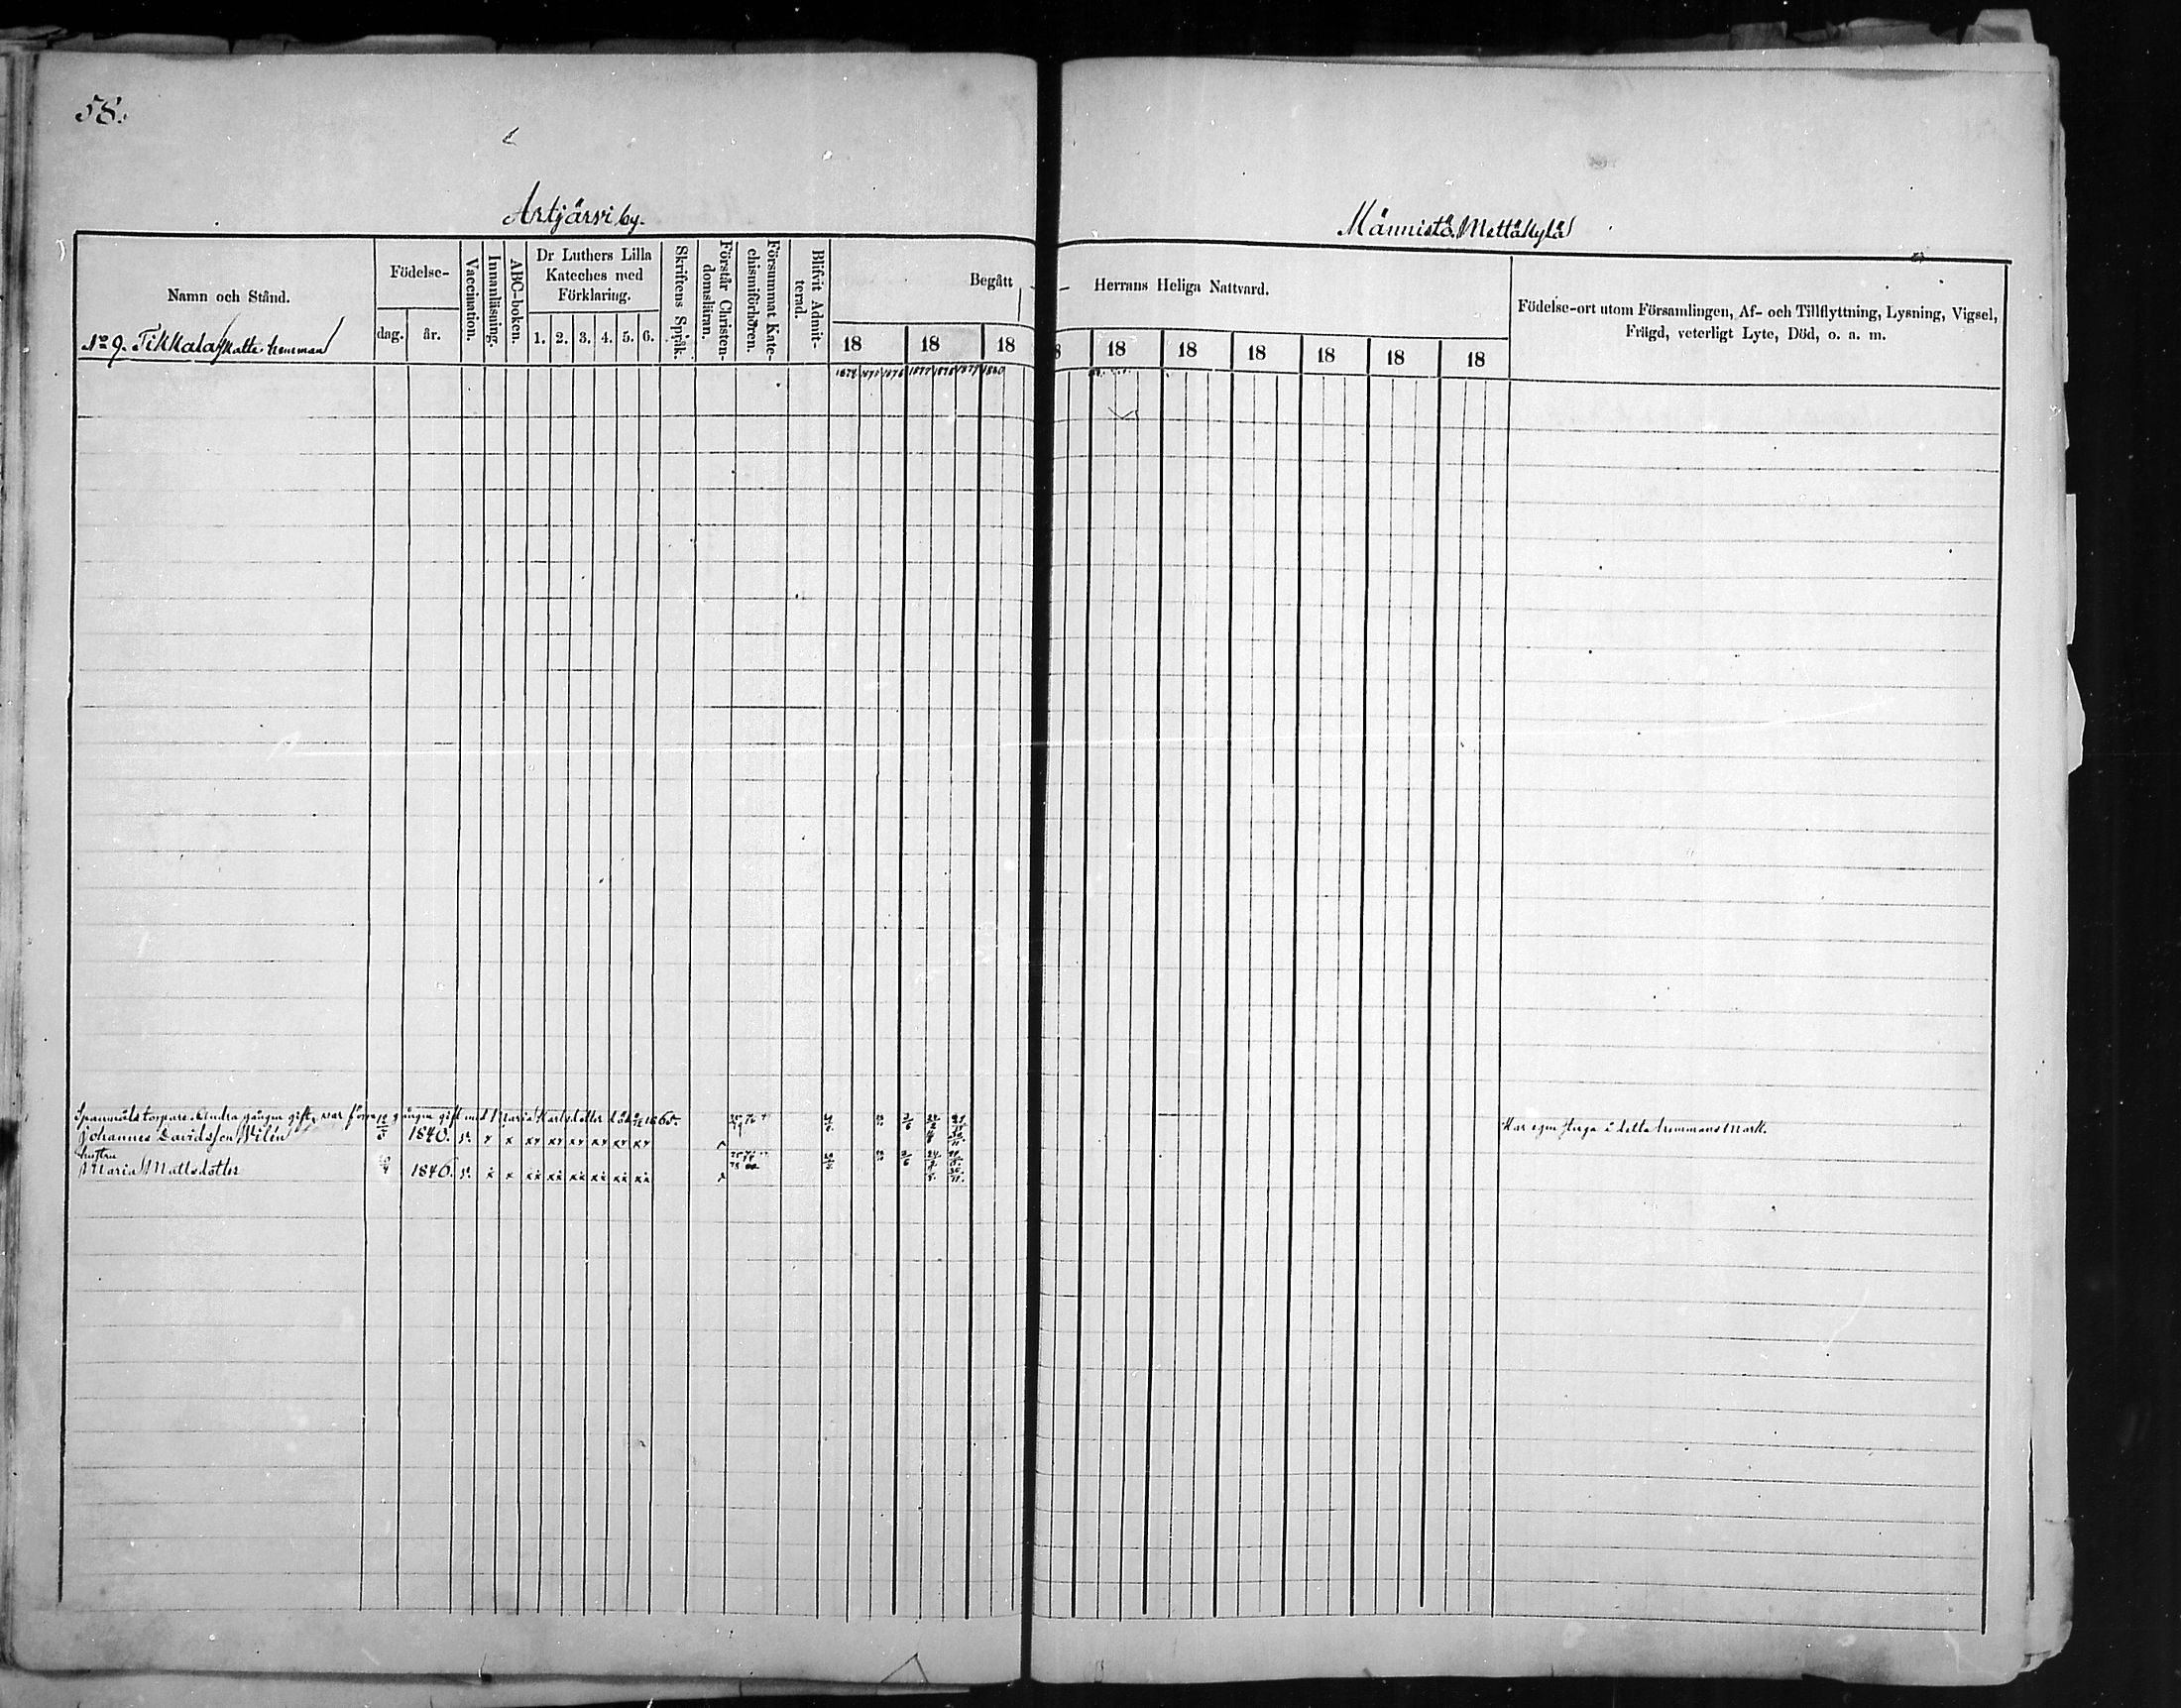 58.
Artjärvi by.
Männistö Mettäkylä
Namn och Stånd.
No 9. Tikkala Skatte hemman
Födelse-
dag. år.
Vaccination.
Innanläsning.
ABC-boken.
Dr Luthers Lilla
Kateches med
Förklaring.
1. 2. 3. 4. 5. 6.
Skriftens Språk.
Förstår Christen-
domsläran.
Försummat Kate-
chismiförhören.
Blifvit Admit-
terad.
Begått
Herrans Heliga Nattvard.
18 18 18 18 18 18 18 18 18
1877 1878 1879 1880
Födelse-ort utom Församlingen, Af- och Tillflyttning, Lysning, Vigsel,
Frägd, veterligt Lyte, Död, o. a. m.
Spanmåls torpare. Andra gången gift, var förra gången gift med Maria Karlsdotter död 1865.
Johannes Davidsson Vilén 1840. v. x x xx xx xx xx xx xx
Har egen stuga i detta hemmans mark.
hustru
Maria Mattsdotter 1846. v. x x xx xx xx xx xx xx